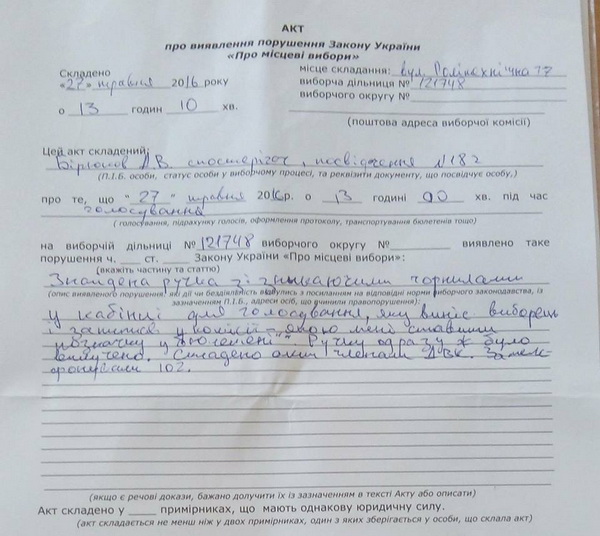 АКТ
про виявлення порушення Закону України
«Про місцеві вибори»
Складено
«27» травня 2016 року
о 13 годин 10 хв.
місце складання: вул. Політехнічна 77
виборча дільниця № 121748
виборчого округу №
(поштова адреса виборчої комісії)
Цей акт складений:
А.В. спостерігач, посвідчення №182
(П.І.Б. особи, статус особи у виборчому процесі, та реквізити документу, що посвідчує особу,)
про те, що "27" травня 2016р. о 13 годині 00 хв. під час
голосування
( голосування, підрахунку голосів, оформлення протоколу, транспортування бюлетенів тощо)
на виборчій дільниці №121748 виборчого округу № виявлено таке
порушення ч. ст. Закону України «Про місцеві вибори»:
(вкажіть частину та статтю)
Знайдена ручка зі зникаючими чорнилами
(опис виявленого порушення, які дії чи бездіяльність відбулись з посиланням на відповідні норми виборчого законодавства, із
зазначенням П.І.Б., адреси осіб, що вчинили правопорушення):
у кабінці для голосування, яку виніс виборець
і запитав у комісії „якою мені ставити
позначку у бюлетені". Ручку одразу ж було
вилучено. Складено акт членами ДВК. Зателе-
фонували 102.
(якщо є речові докази, бажано долучити їх із зазначенням в тексті Акту або описати)
Акт складено у ____ примірниках, що мають однакову юридичну силу.
(акт складається не менш ніж у двох примірниках, один з яких зберігається у особи, що склала акт)